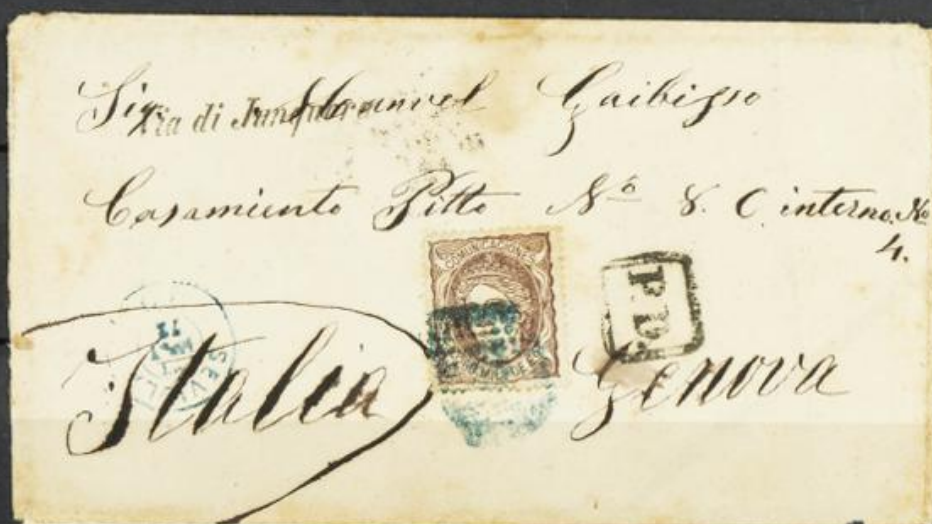 Sig. Manuel Gaibisso
Via di Junquera
Casamiento Pitto Nº 8. C interno. Nº
4.
COMUNICACIONES
P.D.
SEVI
Italia Genova